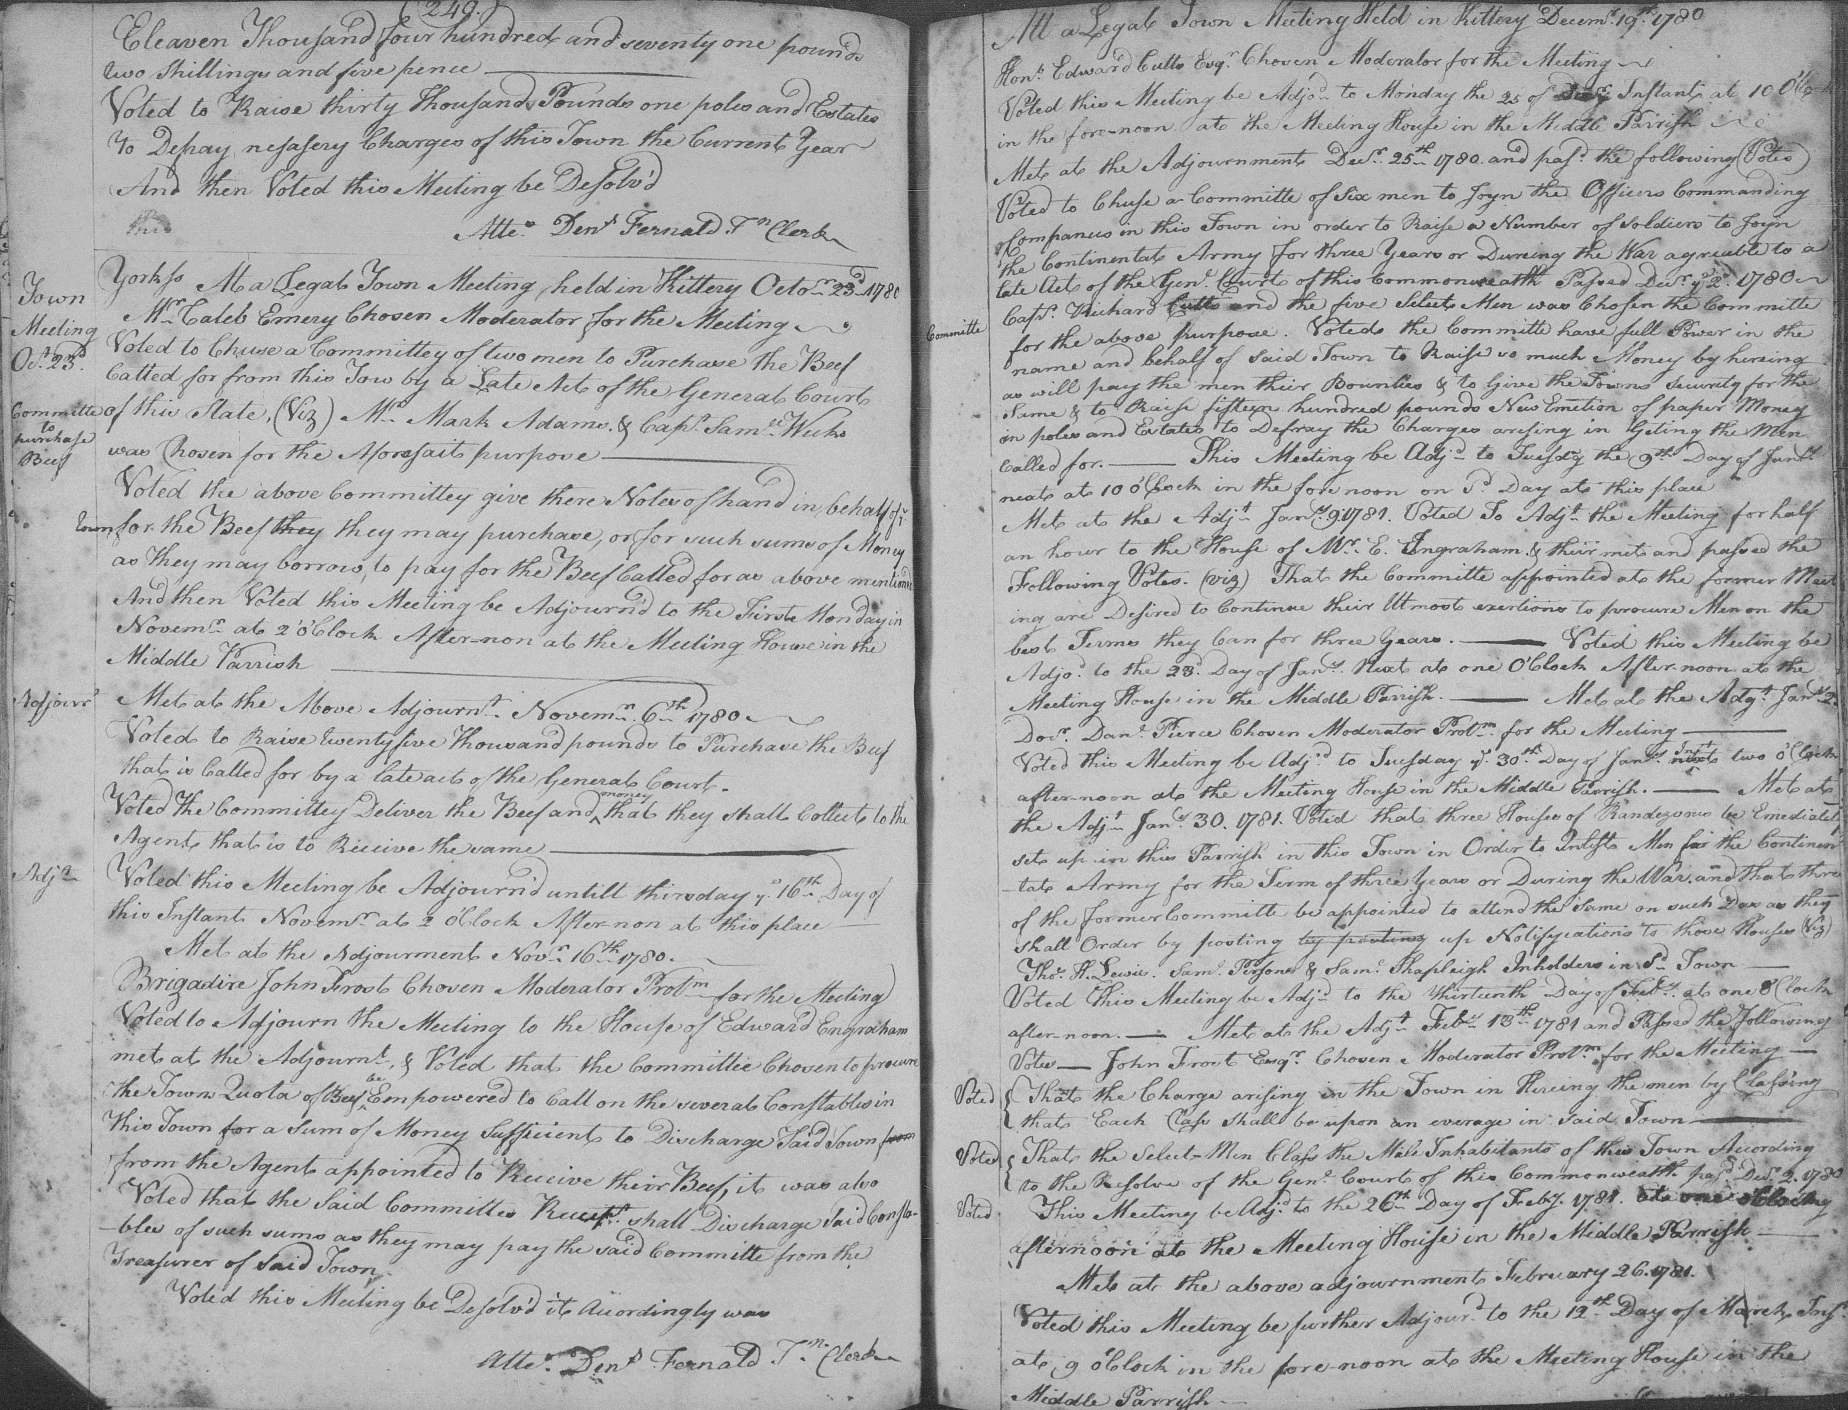 (249.)
Eleaven Thousand four hundred and seventy one pounds
two shillings and five pence
Voted to Raise thirty Thousands Pounds one poles and Estates
to Defray nessasery Charges of this Town the Current Year
And then Voted this Meeting be Desolv'd
this
Attes Den.s Fernald Tn Clerk
Town
Meeting
Oct 23d
Yorkss At a Legal Town Meeting held in Kittery Octor 23d 1780
Mr Caleb Emery Chosen Moderator for the Meeting
Voted to Chuse a Committey of two men to Purchase the Beef
Called for from this Tow by a Late Act of the General Court
Committe
to
purchase
Beef
of this State, (Viz) Mr Mark Adams. & Capt Saml Weeks
was Chosen for the Aforesait purpose
Voted the above Committey give there Notes of hand in behalf of ye
town for the Beef they they may purchase, or for such sums of Money
as they may borrow, to pay for the Beef Called for as above mentioned
And then Voted this Meeting be Adjourn'd to the First Monday in
Novemr at 2 o'Clock After-non at the Meeting House in the
Middle Parrish
Adjournt
Met at the Above Adjournt Novemr 6th 1780
Voted to Raise twenty five Thousand pounds to Purchase the Beef
that is Called for by a late act of the General Court.
Voted The Committey Deliver the Beef and money that they shall Collect to the
Agent that is to Receive the same
Adjn
Voted this Meeting be Adjourn'd untill thirsday ye 16th Day of
this Instant Novemr at 2 oClock After-non at this place
Met at the Adjourment Novr 16th 1780.
Brigadire John Frost Chosen Moderator Protm for the Meeting
Voted to Adjourn the Meeting to the House of Edward Engraham
met at the Adjournt, & Voted that the Committee Chosen to procure
the Towns Quota of Beef be Empowered to Call on the several Constables in
This Town for a sum of Money Sufficient to Discharge Said Town from
from the Agent appointed to Receive their Beef, it was also
Voted that the said Committes Receipt shall Discharge said Consta-
-bles of such sums as they may pay the said Committe from the
Treasurer of Said Town
Voted this Meeting be Desolv'd it Acordingly was
Attes. Dens Fernald Tn. Clerk
Att a Legal Town Meeting Held in Kittery Decemr 19th 1780
Honl Edward Cutts Esqr Chosen Moderator for the Meeting
Voted this Meeting be Adjod to Monday the 25 of Instant at 10 OClock
in the fore-noon at the Meeting House in the Middle Parrish
Met at the Adjournment Decr 25th 1780. and pasd the following Votes
Voted to Chuse a Committe of Six men to Joyn the Officers Commanding
Companies in this Town in order to Raise a Number of Soldiers to Joyn
the Continental Army for three Years or Dureing the War agreeable to a
late Act of the Genl Court of this Commonwealth Passed Decr ye 2d 1780
Committe
Capt Richard Cutts and the five Select Men was Chosen the Committe
for the above purpose. Voted the Committe have full Power in the
name and behalf of said Town to Raise so much Money by hireing
as will pay the men their Bounties & to Give the Towns security for the
Same & to Raise fifteen hundred pounds New Emetion of paper Money
on poles and Estates to Defray the Charges arising in Geting the Men
Called for. This Meeting be Adjd to Tuesdy the 9th Day of Janry
next at 10 oClock in the fore noon on sd Day at this place
Met at the Adjt Jany 9. 1781. Voted To Adjt the Meeting for half
an hour to the House of Mr. E. Ingraham. & their met and passed the
Following Votes. (viz) That the Committe appointed at the former Meet
ing are Desired to Continue their Utmost exertions to procure Men on the
best Terms they Can for three Years. Voted this Meeting be
Adjod to the 23d Day of Jany Next at one OClock After noon at the
Meeting House in the Middle Parrish. Met at the Adjt Jany 2
Docr. Danl Pierce Chosen Moderator Protm for the Meeting
Voted this Meeting be Adjd to Tuesday ye 30th Day of Jany Inst next two oClock
after-noon at the Meeting House in the Middle Parrish. Met at
the Adjt Jany 30. 1781. Voted that three Houses of Randezvous be Emediately
set up in this Parrish in this Town in Order to Inlist Men for the Continen
-tal Army for the Term of three Years or During the War. and that three
of the former Committe be appointed to attend the Same on such Dax as they
shall Order by posting by posting up Notifycations to those Houses (Viz)
Thos H. Lewis. Saml Persons & Saml Shapleigh Inholders in sd Town
Voted this Meeting be Adjd to the thirteenth Day of Feby at one oClock
after-noon. Met at the Adjt Feby 13th 1781 and Passed the Following
Votes John Frost Esqr Chosen Moderator Protm for the Meeting
Voted { That the Charge arising in the Town in Hireing the men by Classing
that Each Class shall be upon an everage in said Town
Voted { That the Select-Men Class the Male Inhabitants of this Town According
to the Resolve of the Genl Court of this Commonwealth pasd Decr 2. 1780
Voted This Meeting be Adjd to the 26th Day of Feby. 1781. at one oClock
afternoon at the Meeting House in the Middle Parrish
Met at the above adjournment February 26. 1781.
Voted this Meeting be further Adjourd to the 12th Day of March Inst
at 9 oClock in the fore-noon at the Meeting House in the
Middle Parrish